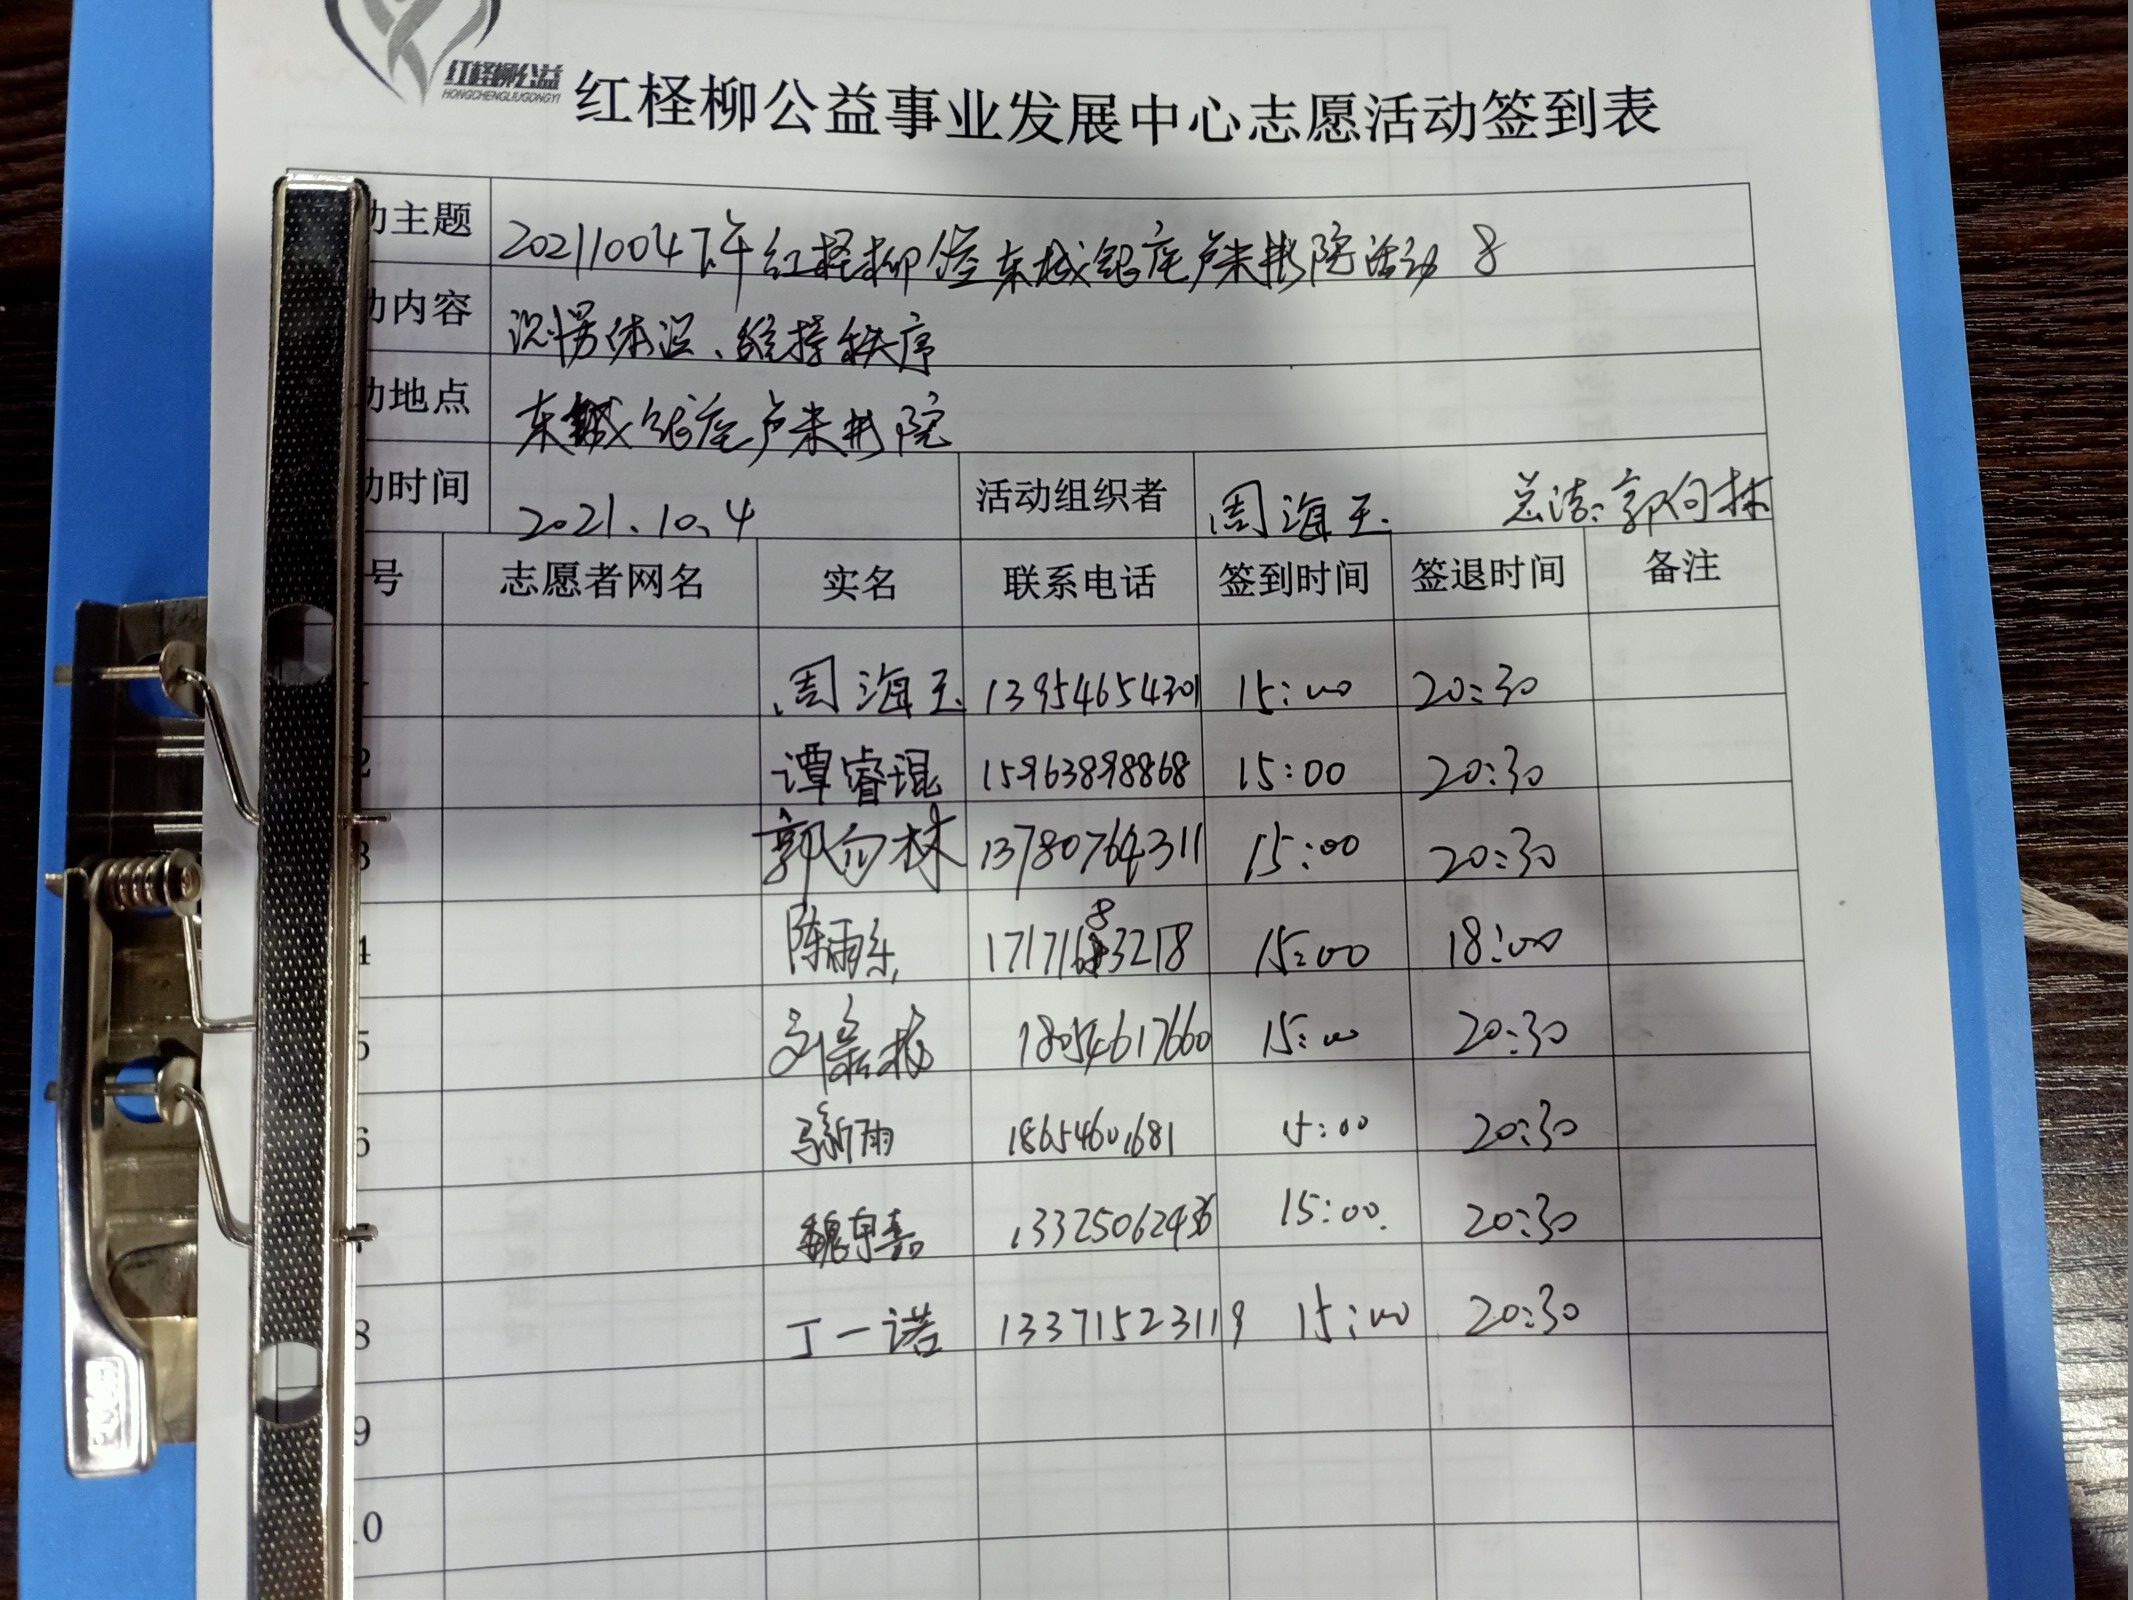 红柽柳公益
HONGCHENGLIUGONGYI
红柽柳公益事业发展中心志愿活动签到表
动主题 20211004下午红柽柳 东城银座卢米影院活动 8
动内容 测量体温、维持秩序
动地点 东城银座卢米影院
动时间 2021.10.4 活动组织者 周海玉 总结:郭向林
号 志愿者网名 实名 联系电话 签到时间 签退时间 备注
周海玉 13954654301 15:00 20:30
2 谭睿琨 15963898868 15:00 20:30
3 郭向林 13780764311 15:00 20:30
4 陈雨乐 17171683218 15:00 18:00
5 刘 18054617660 15:00 20:30
6 新雨 18654601681 15:00 20:30
7 魏 嘉 13325062436 15:00 20:30
8 丁一诺 13371523119 15:00 20:30
9
10